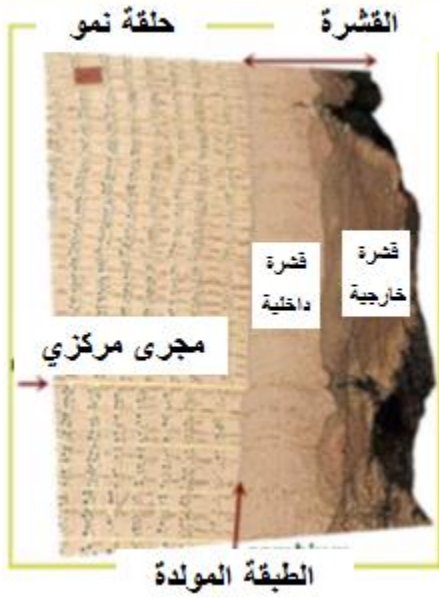 القشرة
حلقة نمو
قشرة
خارجية
قشرة
داخلية
مجرى مركزي
الطبقة المولدة